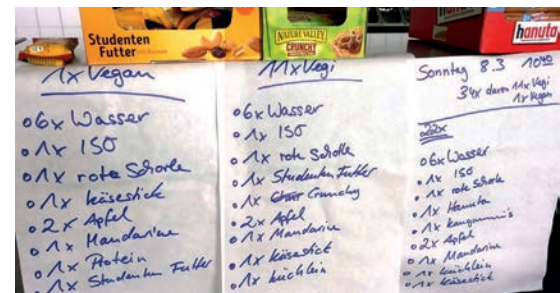 Studenten
Futter
NATURE VALLEY
CRUNCHY
hanuta
1x Vegan
6x Wasser
1x ISO
1x rote Schorle
1x käsestick
2x Apfel
1x Mandarine
1x Protein
1x Studenten Futter
11x Vegi
6x Wasser
1x ISO
1x rote Schorle
1x Studenten Futter
1x Crunchy
2x Apfel
1x Mandarine
1x käsestick
1x küchlein
Sonntag 8.3 10:40
34x davon 11x Vegi
1x Vegan
22x
6x Wasser
1x ISO
1x rote Schorle
1x Hanuta
1x
2x Apfel
1x Mandarine
1x küchlein
1x käsestick